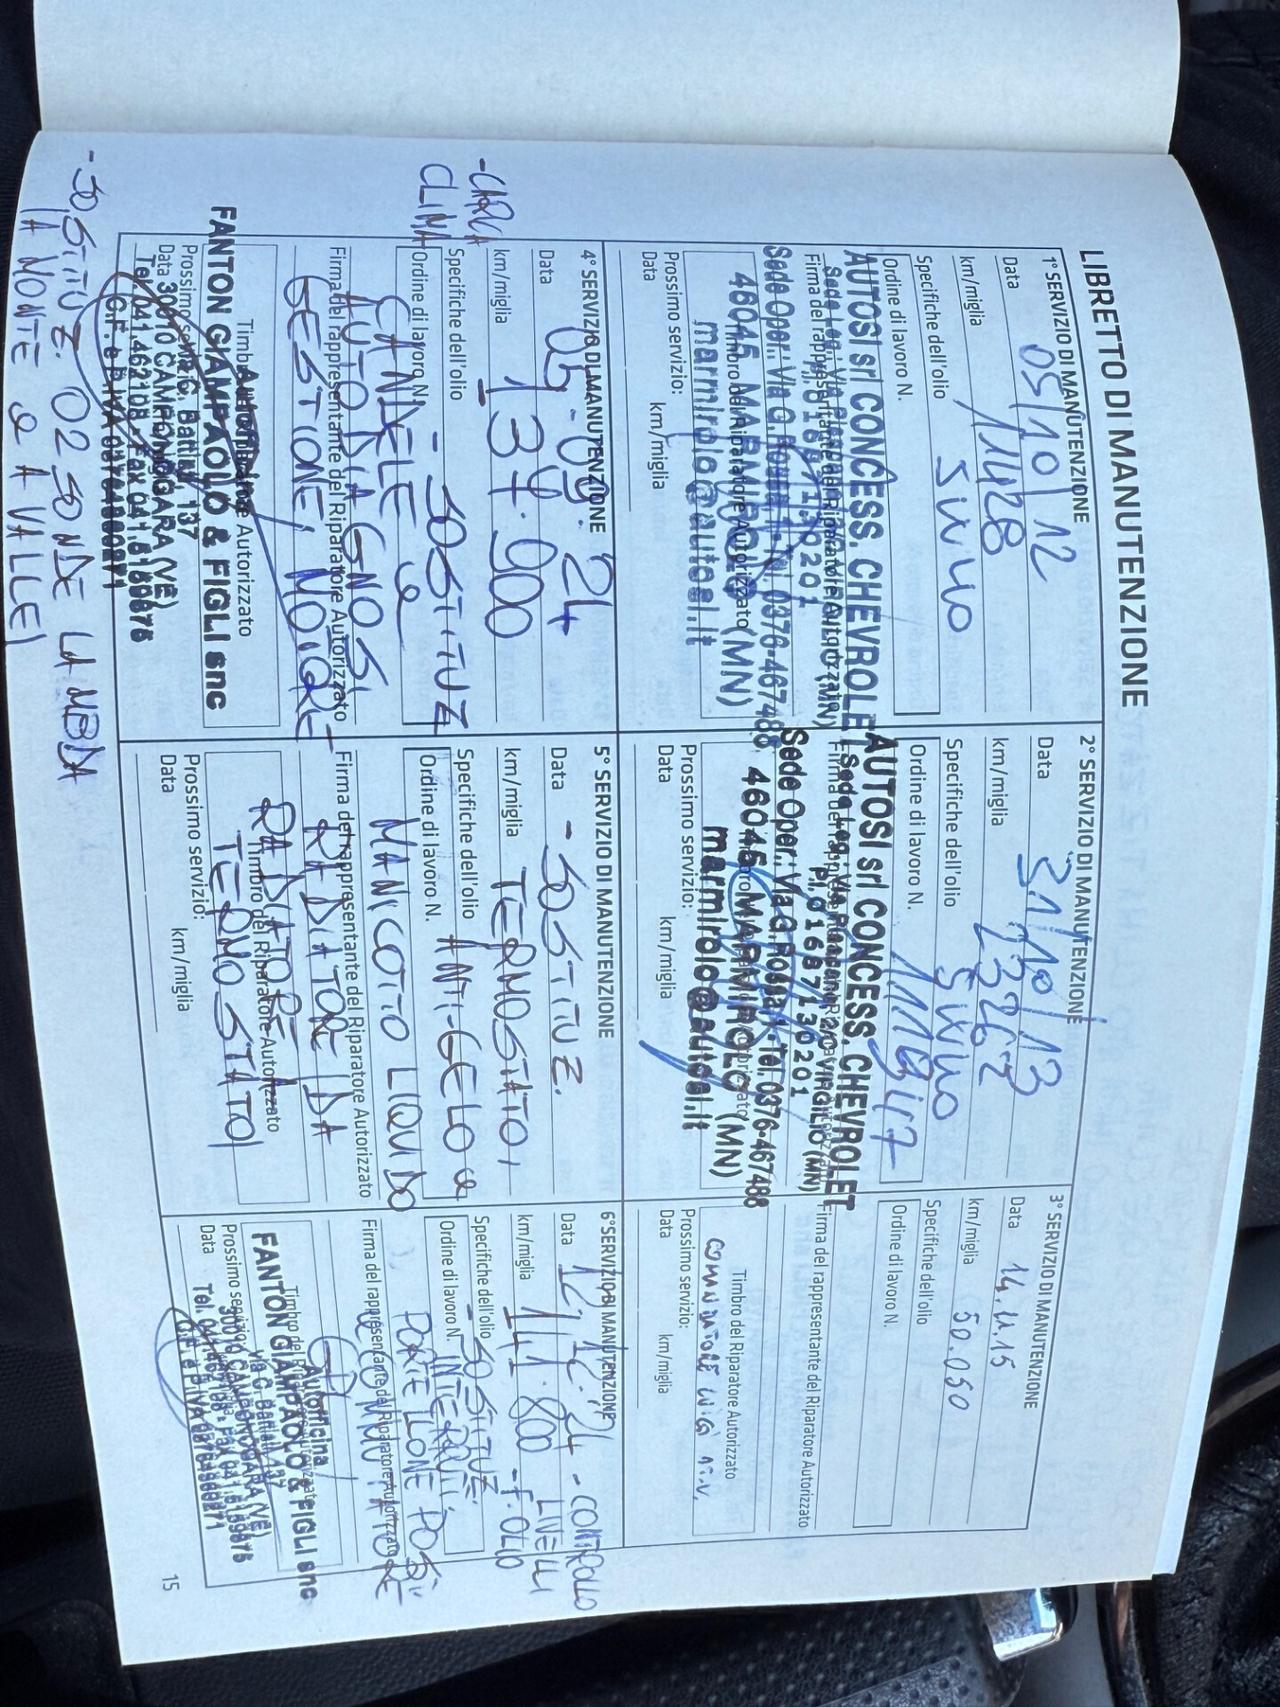 LIBRETTO DI MANUTENZIONE
1° SERVIZIO DI MANUTENZIONE
Data 05/10/12
km/miglia 11428
Specifiche dell'olio 5W40
Ordine di lavoro N.
AUTOSI srl CONCESS. CHEVROLET
Firma del rappresentante del Riparatore Autorizzato
Sede Oper.: Via G. Tel. 0376-467488
46045 MARMIROLO (MN)
Timbro del Riparatore Autorizzato
marmirolo@autosi.it
Prossimo servizio: km/miglia
Data
2° SERVIZIO DI MANUTENZIONE
Data 31/10/13
km/miglia 23262
Specifiche dell'olio 5W40
Ordine di lavoro N. 1119147
AUTOSI srl CONCESS. CHEVROLET
P.I. 01687130201
Sede Oper.: Via G. Rossa, 1 - Tel. 0376-467488
46045 MARMIROLO (MN)
marmirolo@autosi.it
Prossimo servizio: km/miglia
Data
3° SERVIZIO DI MANUTENZIONE
Data 14.11.15
km/miglia 50.050
Specifiche dell'olio
Ordine di lavoro N.
Firma del rappresentante del Riparatore Autorizzato
Timbro del Riparatore Autorizzato
Prossimo servizio: km/miglia
Data
4° SERVIZIO DI MANUTENZIONE
Data 05.09.24
km/miglia 137.900
-CARICA
CLIMA
Specifiche dell'olio - SOSTITUZ
Ordine di lavoro N. CANDELE e
AUTODIAGNOSI
Firma del rappresentante del Riparatore Autorizzato
GESTIONE MOTORE
Timbro del Riparatore Autorizzato
Autofficina
FANTON GIAMPAOLO & FIGLI snc
Prossimo servizio:
Via G. Battisti, 137
Data
30010 CAMPONOGARA (VE)
Tel. 041.462108 - Fax 041.5159875
C.F. e P.IVA 03764360271
- SOSTITUZ. 02 SONDE LAMBDA
(A MONTE e A VALLE)
5° SERVIZIO DI MANUTENZIONE
Data - SOSTITUZ.
km/miglia TERMOSTATO,
Specifiche dell'olio ANTI-GELO e
Ordine di lavoro N.
MANICOTTO LIQUIDO
Firma del rappresentante del Riparatore Autorizzato
RADIATORE (DA
RADIATORE A
Timbro del Riparatore Autorizzato
TERMOSTATO)
Prossimo servizio: km/miglia
Data
6° SERVIZIO DI MANUTENZIONE
Data 12.12.24 - CONTROLLO
LIVELLI
km/miglia 141.800 - F. OLIO
Specifiche dell'olio - SOSTITUZ.
Ordine di lavoro N. INTERRUTT.
PORTELLONE POST.
Firma del rappresentante del Riparatore Autorizzato
Autofficina
FANTON GIAMPAOLO & FIGLI snc
Via G. Battisti, 137
Prossimo servizio:
30010 CAMPONOGARA (VE)
Data
Tel. 041.462108 - Fax 041.5159875
C.F. e P.IVA 03764360271
15